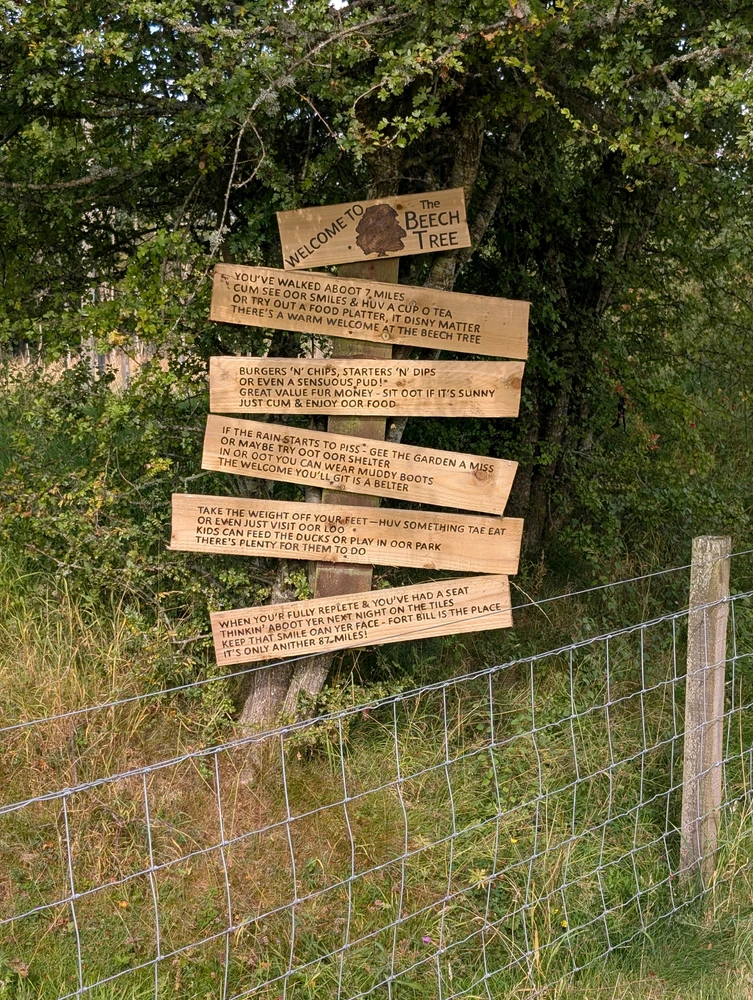 WELCOME TO The BEECH TREE
YOU'VE WALKED ABOOT 7 MILES
CUM SEE OOR SMILES & HUV A CUP O TEA
OR TRY OUT A FOOD PLATTER, IT DISNY MATTER
THERE'S A WARM WELCOME AT THE BEECH TREE
BURGERS 'N' CHIPS, STARTERS 'N' DIPS
OR EVEN A SENSUOUS PUD!
GREAT VALUE FUR MONEY - SIT OOT IF IT'S SUNNY
JUST CUM & ENJOY OOR FOOD
IF THE RAIN STARTS TO PISS - GEE THE GARDEN A MISS
OR MAYBE TRY OOT OOR SHELTER
IN OR OOT YOU CAN WEAR MUDDY BOOTS
THE WELCOME YOU'LL GIT IS A BELTER
TAKE THE WEIGHT OFF YOUR FEET - HUV SOMETHING TAE EAT
OR EVEN JUST VISIT OOR LOO
KIDS CAN FEED THE DUCKS OR PLAY IN OOR PARK
THERE'S PLENTY FOR THEM TO DO
WHEN YOU'R FULLY REPLETE & YOU'VE HAD A SEAT
THINKIN' ABOOT YER NEXT NIGHT ON THE TILES
KEEP THAT SMILE OAN YER FACE - FORT BILL IS THE PLACE
IT'S ONLY ANITHER 87 MILES!